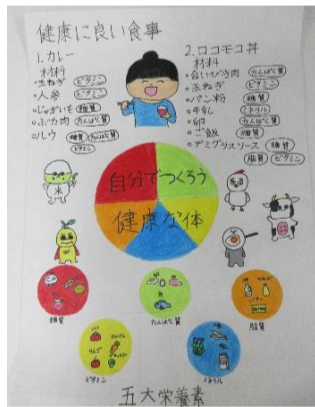 健康に良い食事
1.カレー
材料
・玉ねぎ ビタミン
・人参 ビタミン
・じゃがいも 糖質
・ブタ肉 たんぱく質
・ルウ 糖質 たんぱく質
ビタミン
2.ロコモコ丼
材料
・合いびき肉 たんぱく質
・玉ねぎ ビタミン
・パン粉 糖質
・牛乳 ミネラル
・卵 たんぱく質
・ご飯 糖質
・デミグラスソース 糖質
脂質 ビタミン
自分でつくろう
健康な体
米
糖質
たんぱく質
脂質
りんご
ビタミン
ミネラル
五大栄養素